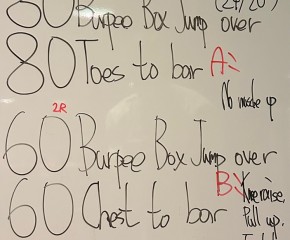 80 Burpee Box Jump over
80 Toes to bar A:
No made up
2R
60 Burpee Box Jump over
60 Chest to bar B:
Pull up.